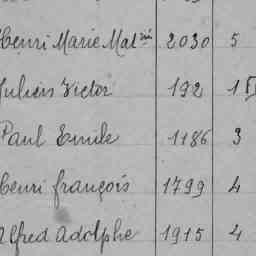 Henri Marie Mat^rin 2030 5
Julien Victor 192 1
Paul Emile 1186 3
Henri françois 1799 4
Alfred Adolphe 1915 4